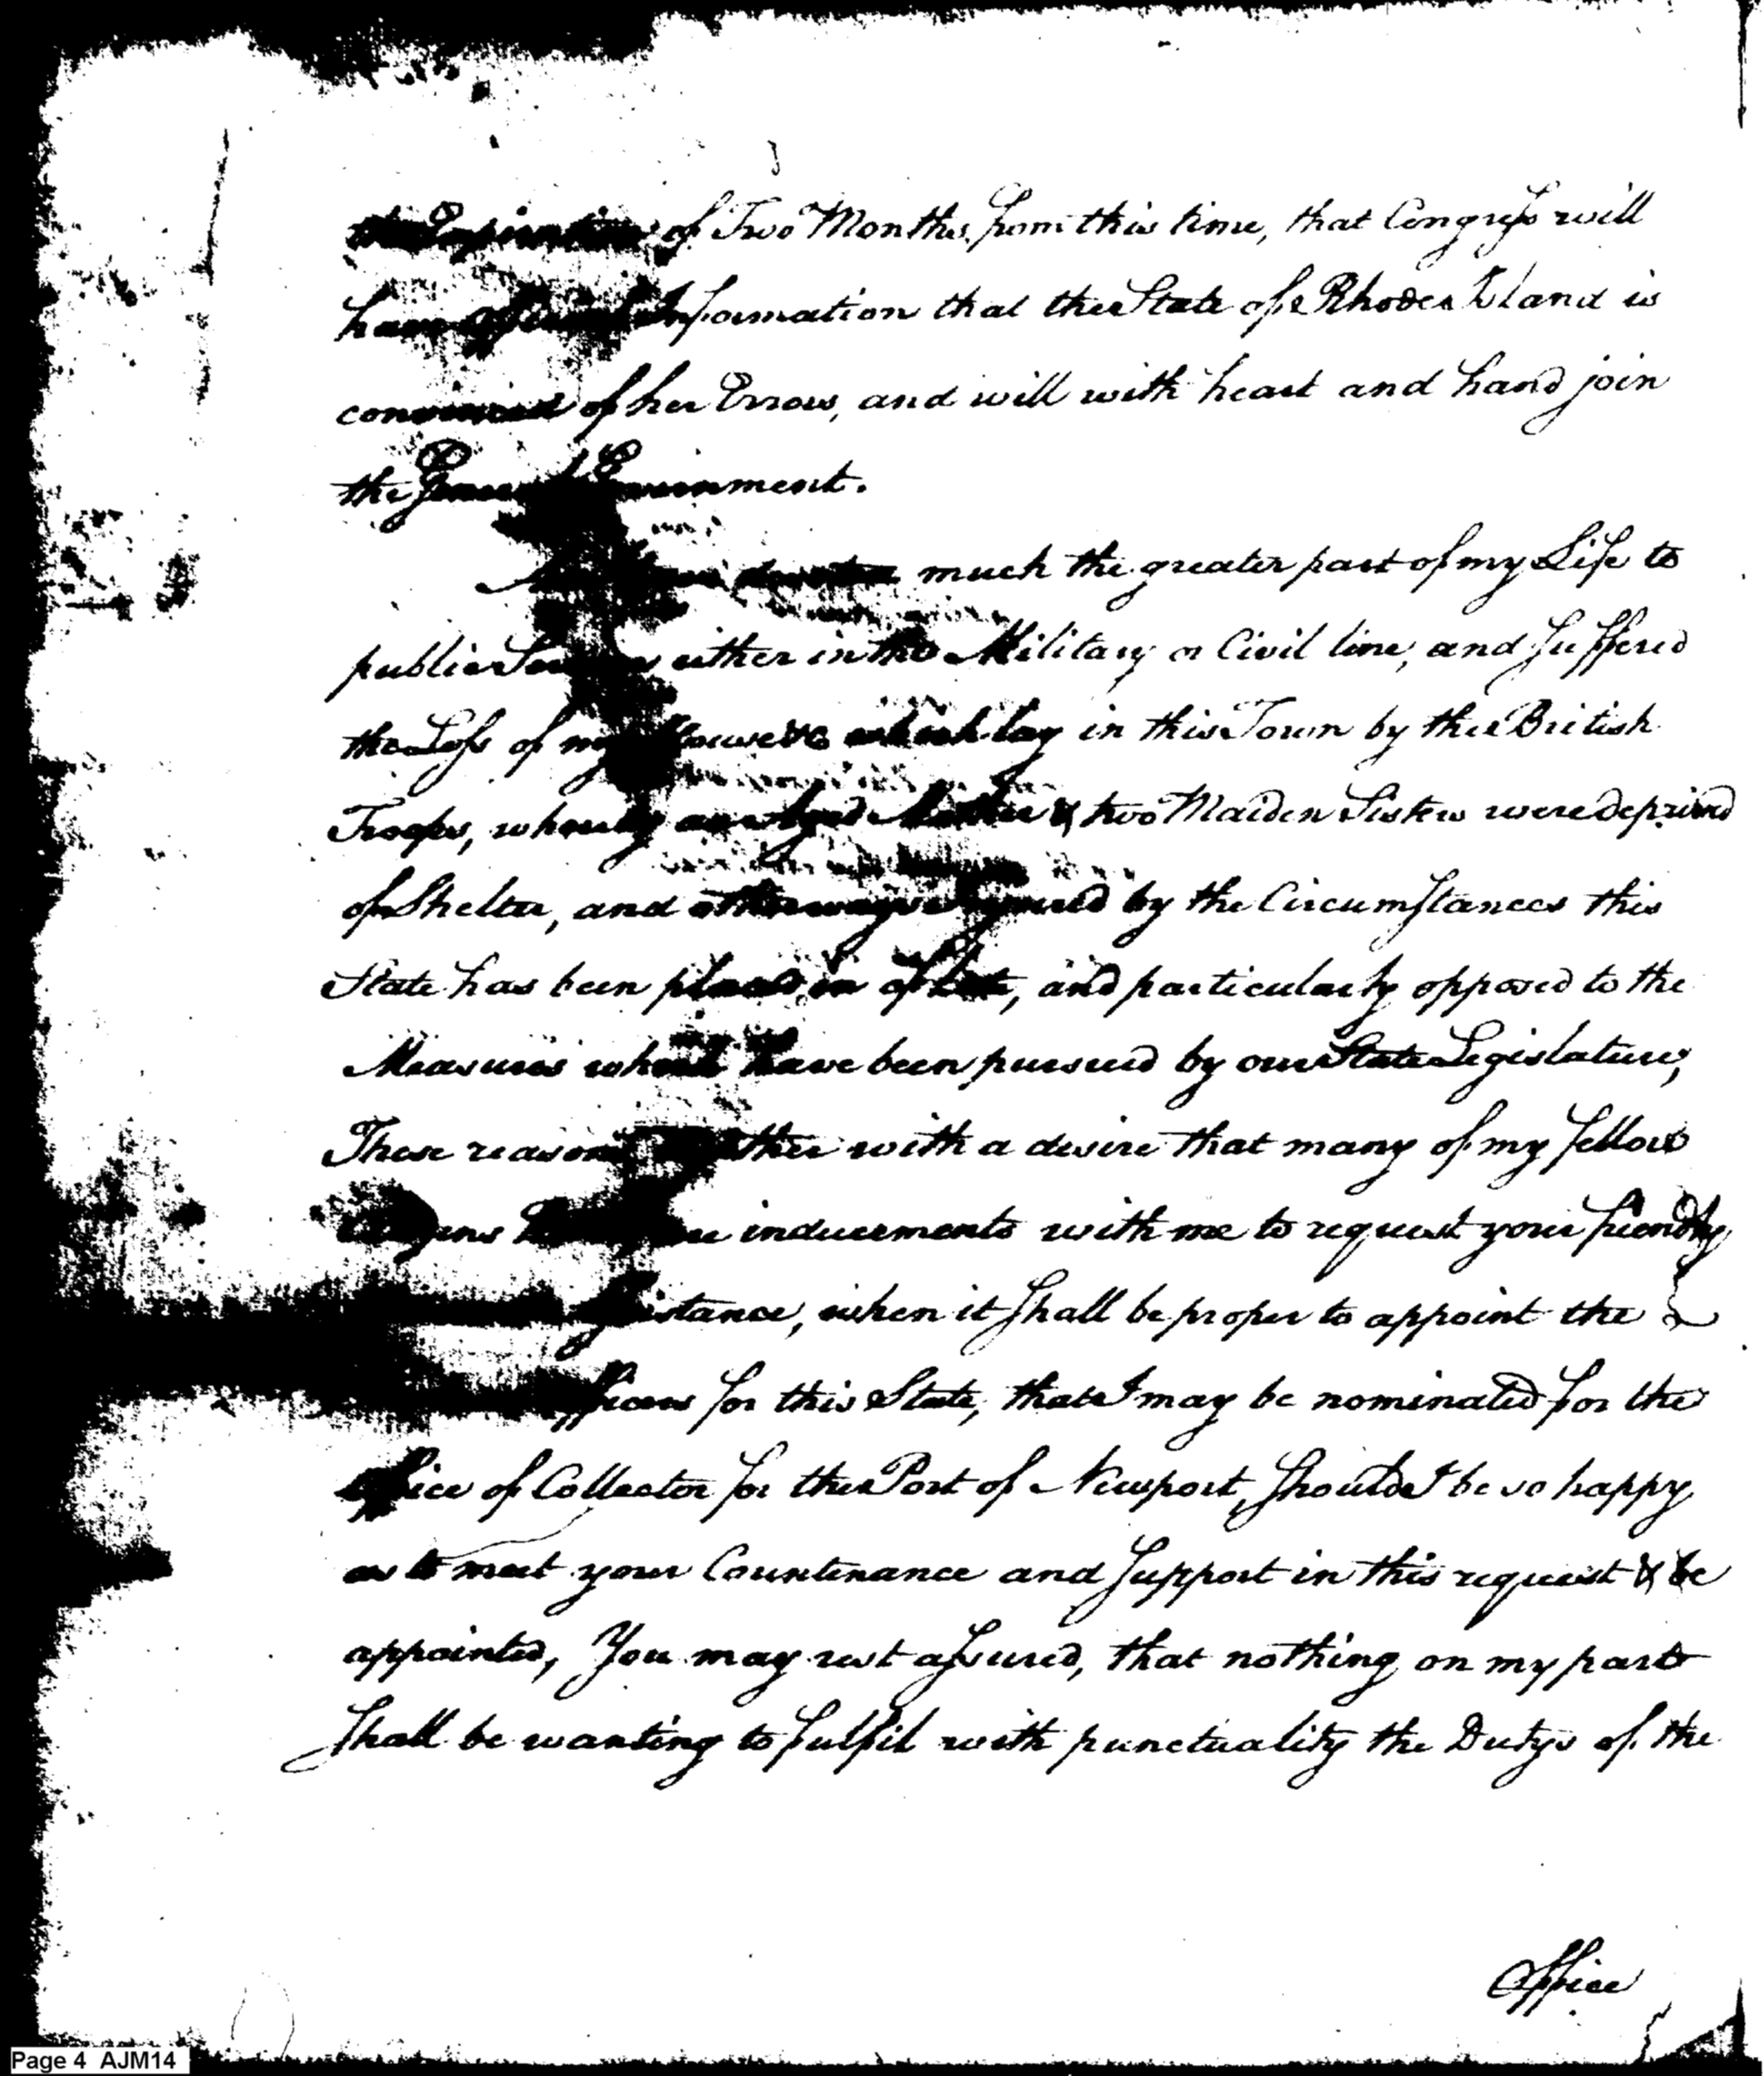 the Expiration of Two Months from this time, that Congress will
have Information that the State of Rhode Island is
convinced of her Errors, and will with heart and hand join
the General Government.
much the greater part of my Life to
public Service either in the Military or Civil line, and Suffered
the Loss of my Houses which lay in this Town by the British
Troops, whereby an Aged Mother & two Maiden Sisters were deprived
of Shelter, and otherways Injured by the Circumstances this
State has been placed in of late, and particularly opposed to the
Measures which have been pursued by our State Legislature,
These reasons together with a desire that many of my fellow
Citizens have are inducements with me to request your friendly
Assistance, when it Shall be proper to appoint the
Officers for this State, that I may be nominated for the
Office of Collector for the Port of Newport, Should I be so happy
as to meet your Countenance and Support in this request & be
appointed, You may rest assured, that nothing on my part
Shall be wanting to fulfil with punctuality the Dutys of the
Office
Page 4 AJM14